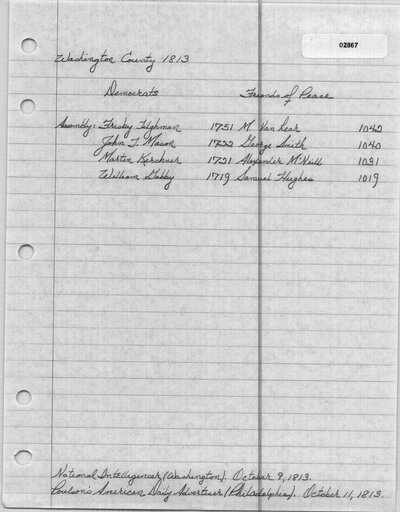 02867
Washington County 1813
Democrats Friends of Peace
Assembly: Frisby Tilghman 1751 M. Van Lear 1042
John T. Mason 1722 George Smith 1040
Martin Kershner 1721 Alexander McNeill 1031
William Gabby 1719 Samuel Hughes 1019
National Intelligencer (Washington). October 9, 1813.
Poulson's American Daily Advertiser (Philadelphia). October 11, 1813.